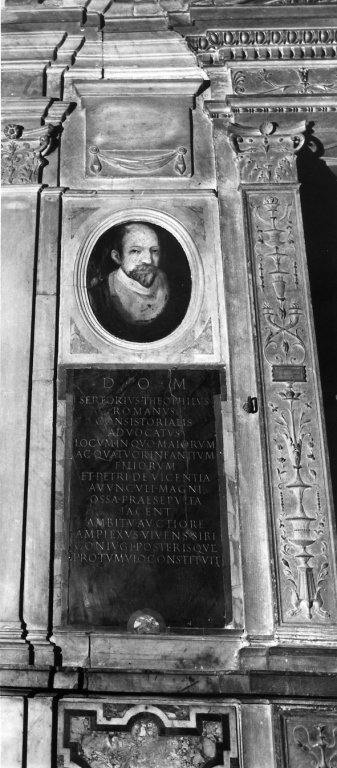 D O M
SERTORIVS THEOPHILVS
ROMANVS
CONSISTORIALIS
ADVOCATVS
LOCVM IN QVO MAIORVM
AC QVATVOR INFANTIVM
FILIORVM
ET PETRI DE VICENTIA
AVVNCVLI MAGNI
OSSA PRAESEPVLTA
IACENT
AMBITV AVCTIORE
AMPLEXVS VIVENS SIBI
CONIVGI POSTERISQVE
PRO TVMVLO CONSTITVIT